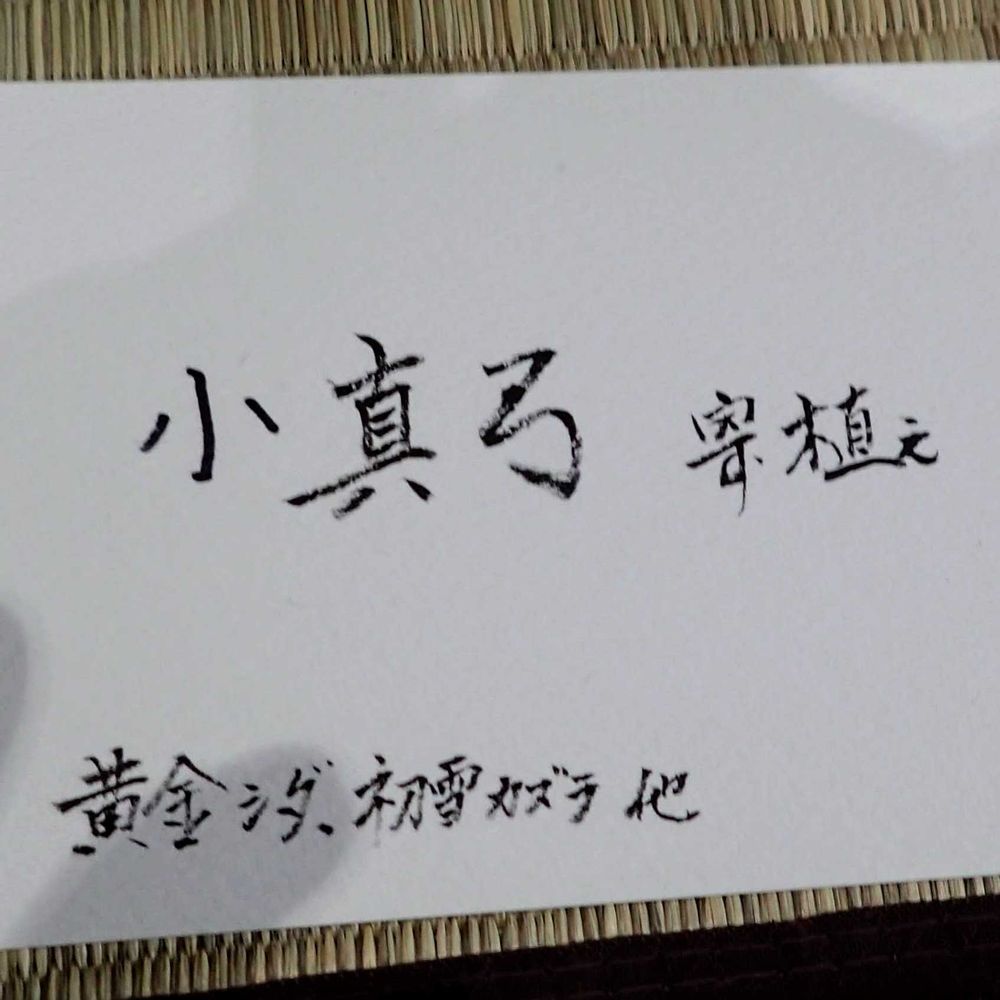 小真弓 寄植え
黄金シダ、初雪カズラ 他